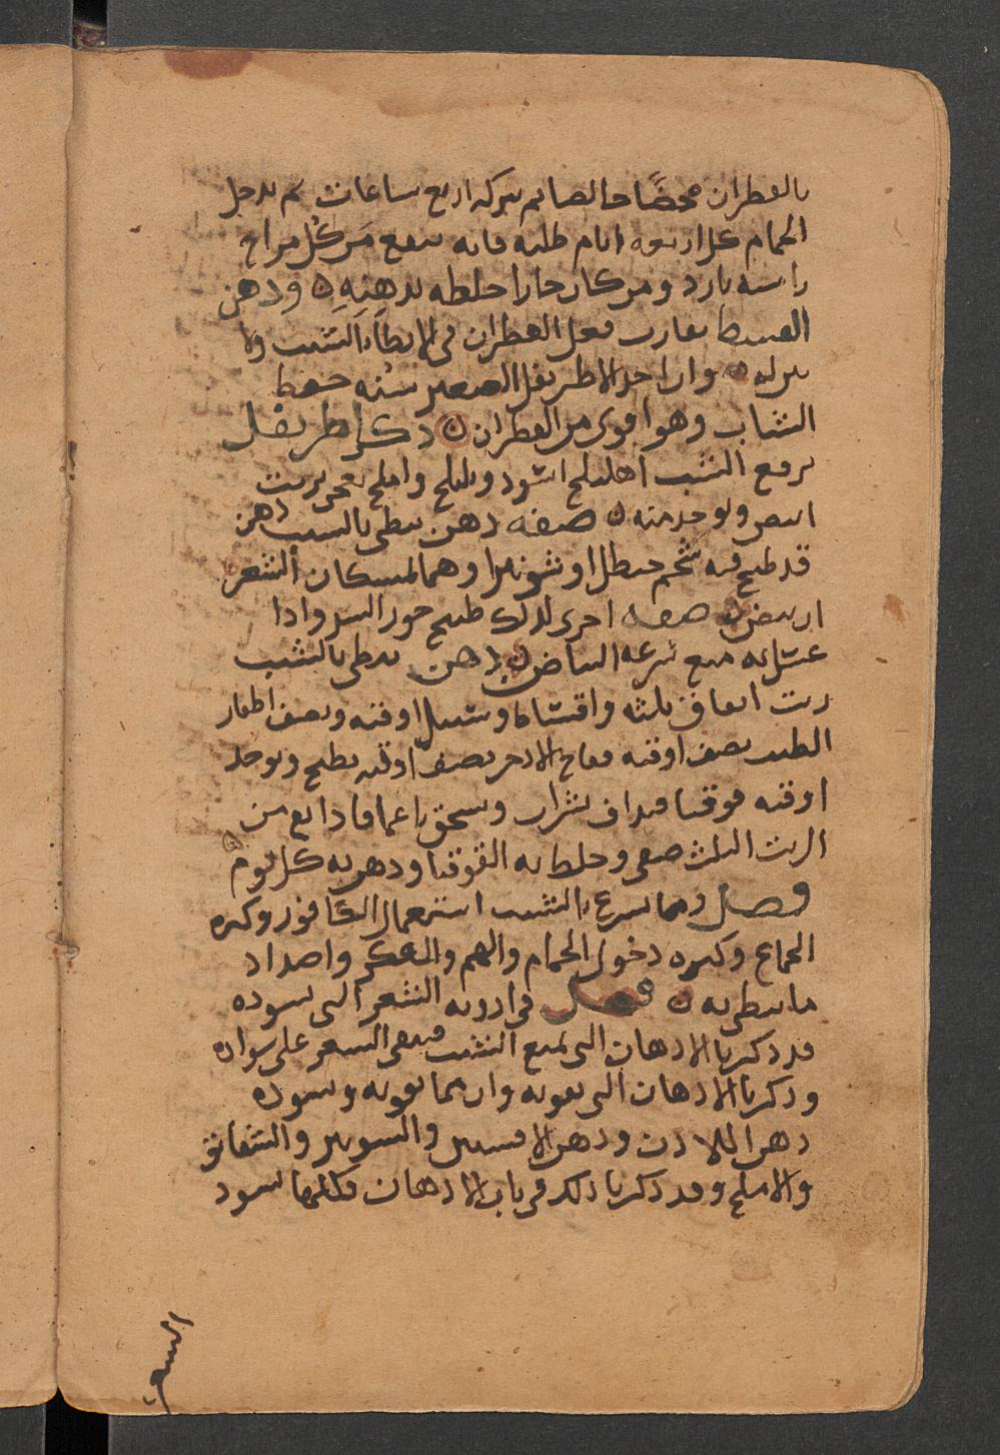 بالقطران محضًا حالصا ثم يتركه اربع ساعات ثم يدخل
الحمام كل اربعة ايام طليه فانه ينفع من كل مزاج
راسه بارد ومن كان حارا خلطه بدهنه ه ودهن
القسط يقارب فعل القطران في الابطاء بالشيب ولا
وان اخذ الاطريفل الصغير سنه حفظ
الشباب وهو اقوى من القطران ه ذكر اطريفل
يرفع الشيب اهليلج اسود وبليلج واملج بزيت
ويوخذ منه ه صفه دهن يبطي بالشيب دهن
قد طبخ فيه شحم حنظل او شونيزا وهما يمسكان الشعر
ان يبيض ه صفه اخرى لذلك طبيخ جوز السرو اذا
غسل به منع سرعه البياض ه دهن يبطي بالشيب
زيت انفاق ثلثه واقسياه وسنبل اوقيه ونصف اظفار
الطيب نصف اوقيه فقاح الاذخر نصف اوقيه يطبخ ويوخذ
اوقيه قوقيا فيداف بشراب ويسحق ناعما فاذا بقي من
الزيت الثلث صفي وخلط به القوقيا ودهن به كل يوم ه
فصل ومما يسرع بالشيب استعمال الكافور وكثره
الجماع وكثره دخول الحمام والهم والفكر واضداد
ما يبطي به ه فصل في ادويه الشعر التي تسوده
قد ذكرنا الادهان التي تمنع الشيب فيبقى الشعر على سواده
وذكرنا الادهان التي تقويه وان مما يقويه ويسوده
دهن اللادن ودهن الافسنتين والشونيز والشقائق
والاملج وقد ذكرنا ذلك في باب الادهان فكلها تسود